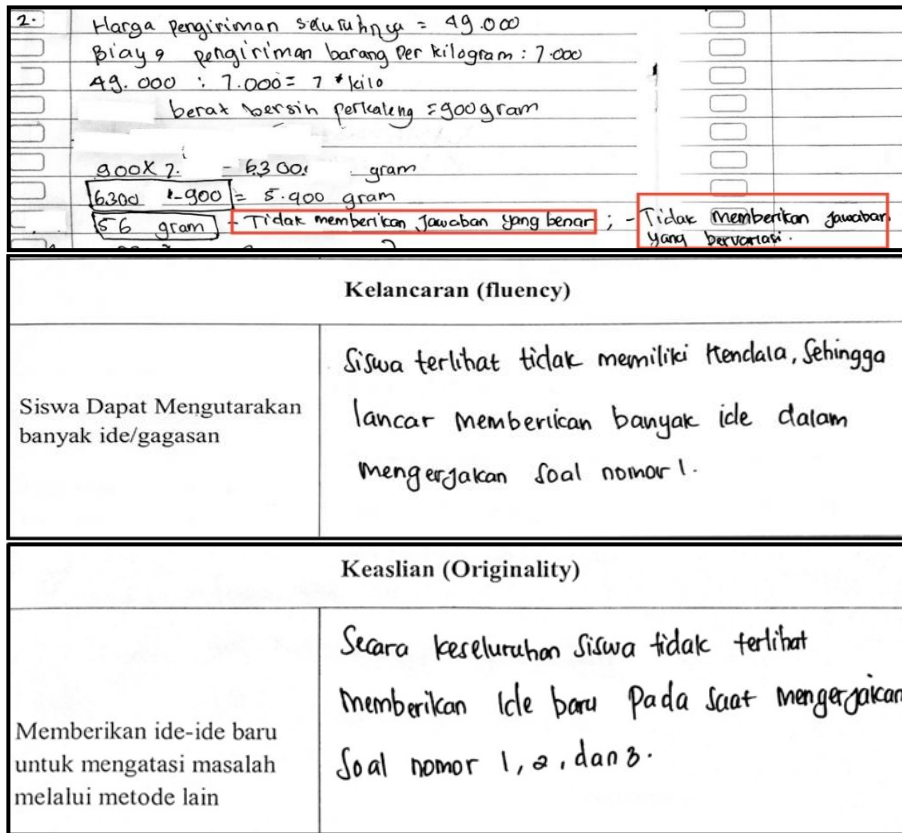 2.
Harga pengiriman seluruhnya = 49.000
Biaya pengiriman barang Per kilogram : 7.000
49.000 : 7.000 = 7 kilo
berat bersih perkaleng = 900 gram
900 X 7. = 6300. gram
6.300 - 900 = 5.900 gram
56 gram - Tidak memberikan Jawaban yang benar ; - Tidak memberikan jawaban
yang bervariasi.
Kelancaran (fluency)
Siswa Dapat Mengutarakan
banyak ide/gagasan
Siswa terlihat tidak memiliki kendala, Sehingga
lancar memberikan banyak ide dalam
mengerjakan Soal nomor 1.
Keaslian (Originality)
Memberikan ide-ide baru
untuk mengatasi masalah
melalui metode lain
Secara keseluruhan Siswa tidak terlihat
memberikan Ide baru Pada Saat mengerjakan
Soal nomor 1, 2, dan 3.